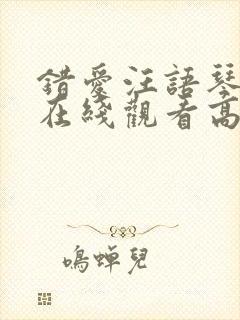 錯愛汪語琴
在綫觀看高
鳴蟬兒